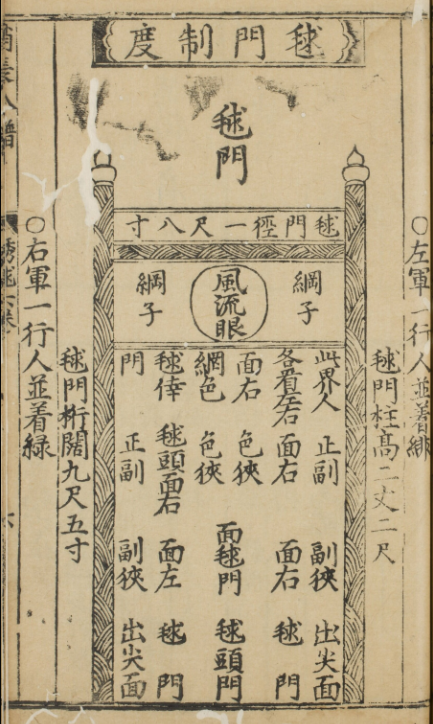 毬門制度
毬門
○左軍一行人並着緋
毬門柱高二丈二尺
毬門徑一尺八寸
網子
風流眼
網子
此界人 正副 副狹 出尖面
各看左右 面右 面右 毬門
面右 色狹
面毬門 毬頭門
網色 色狹
毬侔 毬頭面右 面左 毬門
門 正副 副狹 出尖面
毬門桁闊九尺五寸
○右軍一行人並着緑
六